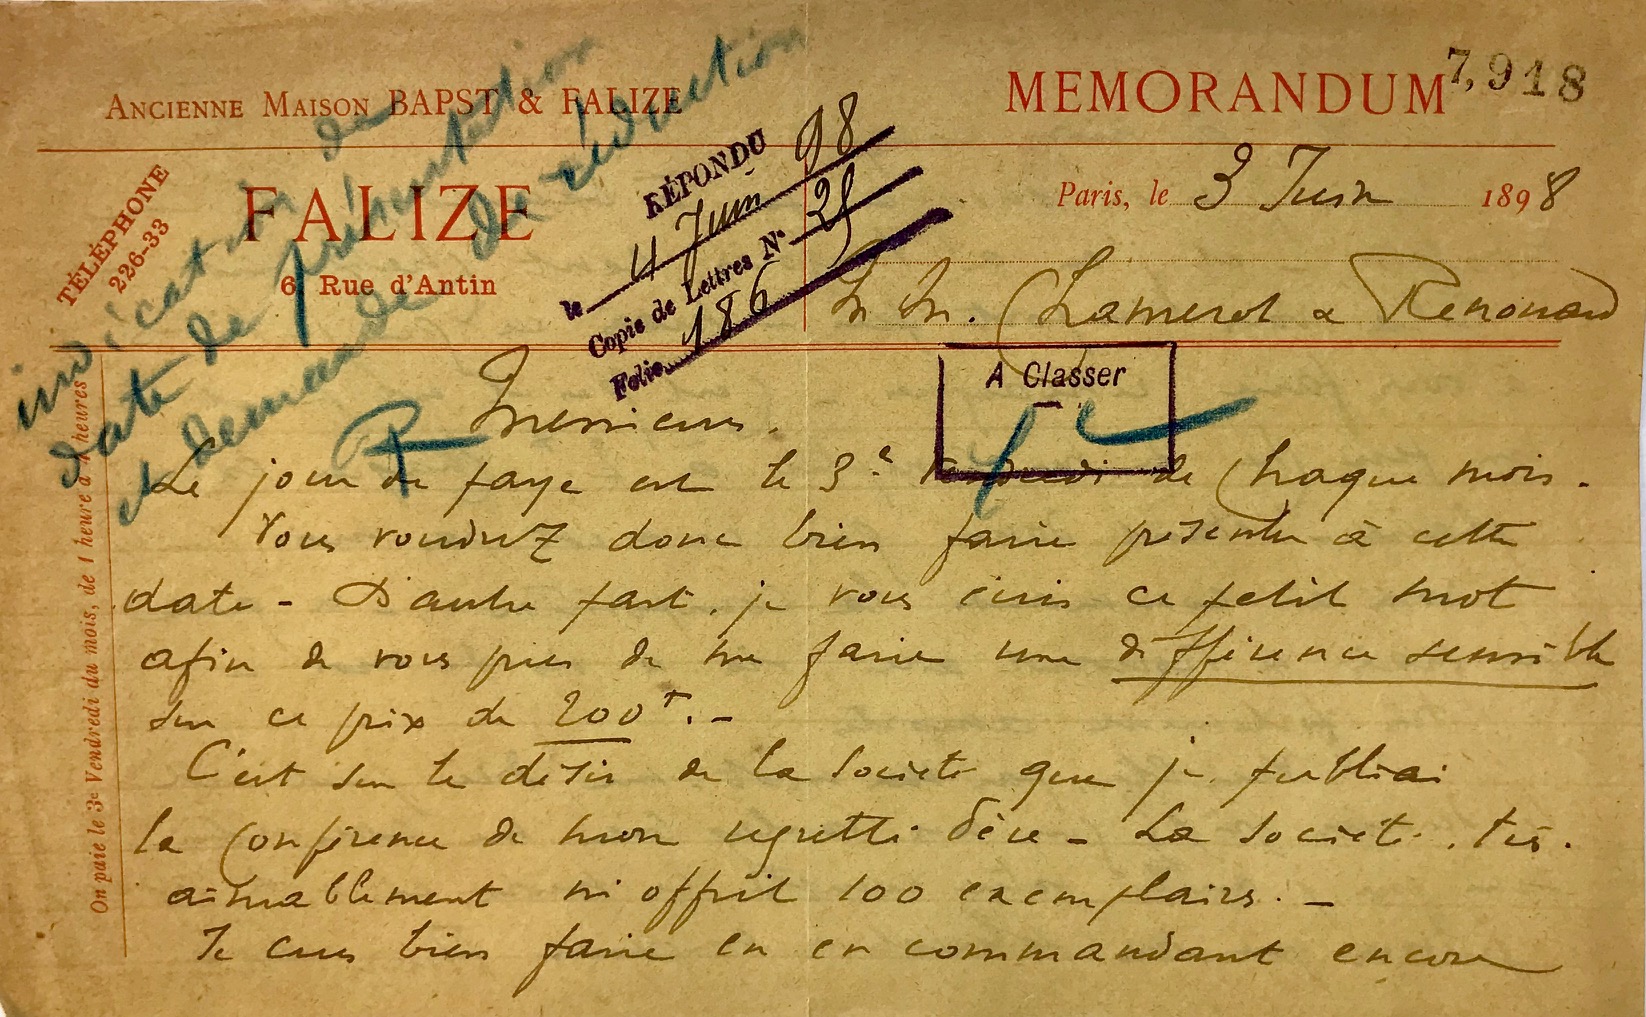 ANCIENNE MAISON BAPST & FALIZE
MEMORANDUM
7,918
TÉLÉPHONE
226-33
FALIZE
6, Rue d'Antin
Paris, le 3 Juin 1898
M M. Chamerot & Renouard
indication de
date de présentation
et demande de réduction
RÉPONDU
le 4 Juin 98
Copie de Lettres No 25
Folio 186
A Classer
On paie le 3e Vendredi du mois, de 1 heure à 4 heures
Messieurs.
Le jour de paye est le 3e Vendredi de chaque mois.
Vous voudrez donc bien faire présenter à cette
date - D'autre part, je vous écris ce petit mot
afin de vous prier de me faire une différence sensible
sur ce prix de 200f. -
C'est sur le désir de la Société que je publiai
la Conférence de mon regretté Père - La Société, très
aimablement m'offrit 100 exemplaires. -
Je crus bien faire en en commandant encore